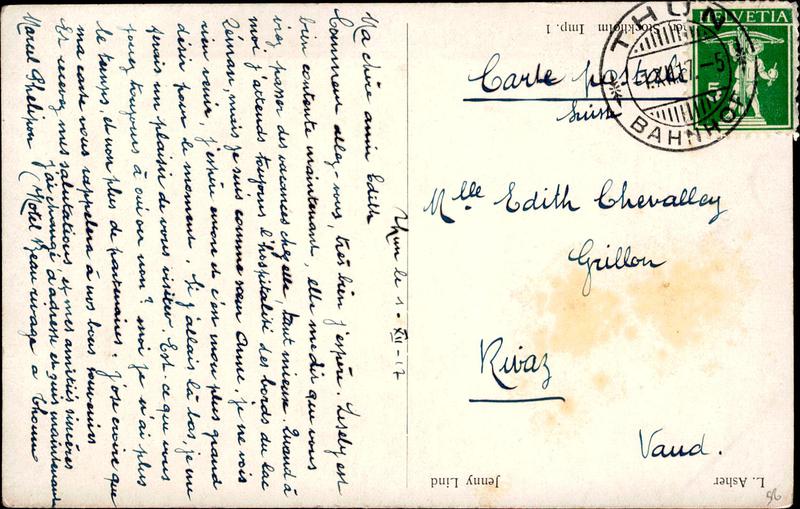 Thun le 1. XII-17
Ma chère amie Edith
Comment allez-vous, très bien j'espère. Lisely est
bien contente maintenant, elle me dit que vous
irez passer des vacances chez elle, tant mieux. Quand à
moi j'attends toujours l'hospitalité des bords du lac
Léman, mais je suis comme sœur Anne, je ne vois
rien venir. j'espère encore et c'est mon plus grand
désir pour le moment. Si j'allais là-bas, je me
ferais un plaisir de vous visiter. Est-ce que vous
jouez toujours à oui ou non? moi je n'ai plus
le temps, et non plus de partenaires. J'ose croire que
ma carte vous rappelera à vos bons souvenirs
Et recevez mes salutations, et mes amitiés sincères
j'ai changé d'adresse et suis maintenant
Marcel Phelipon (Hotel Beau-rivage à Thoune
Carte postale
Suisse
Mlle Edith Chevalley
Grillon
Rivaz
Vaud.
HELVETIA
5
THUN
-5
BAHNHOF
Stockholm Imp. 1
Jenny Lind
L. Asher